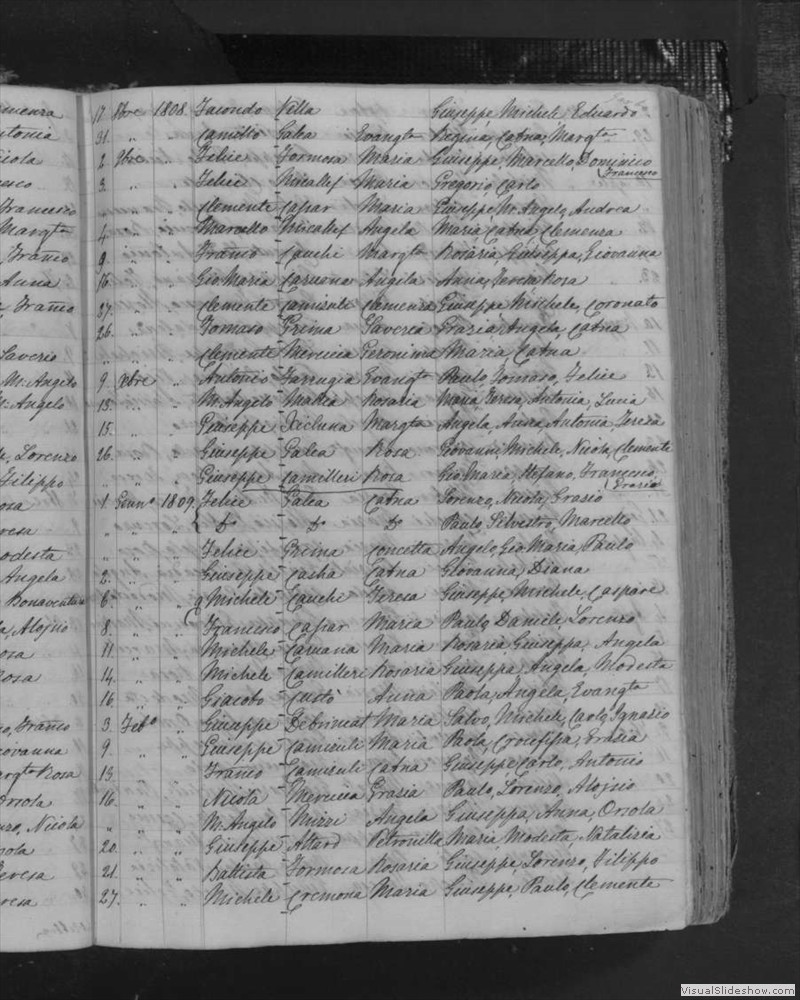 17 8bre 1808 Facondo Vella Giuseppe Michele Eduardo
31 " Camillo Galea Evangta Regina, Catna, Margta
2 9bre " Felice Formosa Maria Giuseppe, Marcello, Dominico
Francesco
3 " " Felice Micallef Maria Gregorio Carlo
" " " Clemente Caspar Maria Giuseppe Mr. Angelo, Andrea
4 " " Marcello Micallef Angela Maria Catna, Clemenza
9 " " Franco Cauchi Margta Rosaria, Giuseppa, Giovanna
16 " " Gio Maria Caruana Angila Anna, Teresa Rosa
" " Clemente Camisuli Clemenza Giuseppe Michele, Coronato
26 " " Tomaso Grima Saveria Grazia, Angela, Catna
" " " Clemente Mercieca Geronima Maria, Catna
9 Xbre " Antonio Farrugia Evangta Paulo, Tomaso, Felice
13 " " M. Angelo Mallia Rosaria Maria Teresa, Antonia, Lucia
15 " " Giuseppe Xicluna Margta Angela, Anna, Antonia, Teresa
26 " " Giuseppe Galea Rosa Giovanni, Michele, Nicola, Clemente
" " " Giuseppe Camilleri Rosa Gio Maria, Stefano, Francesco,
Grazio
1 Genn.o 1809 Felice Galea Catna Lorenzo, Nicola, Grasio
" " " Do Do Do Paulo, Silvestro, Marcello
" " " Felice Grima Concetta Angelo, Gio Maria, Paulo
2 " " Giuseppe Casha Catna Giovanna, Diana
6 " " Michele Cauchi Teresa Giuseppe, Michele, Caspare
8 " " Francesco Caspar Maria Paulo, Daniele, Lorenzo
11 " " Michele Caruana Maria Rosaria Giuseppa, Angela
14 " " Michele Camilleri Rosaria Giuseppa, Angela, Modesta
16 " " Giacobo Custò Anna Paola, Angela, Evangta
3 Feb.o " Giuseppe Debrincat Maria Salvo, Michele, Carlo, Ignazio
9 " " Giuseppe Camisuli Maria Paola, Crocefissa, Grazia
13 " " Franco Camisuli Catna Giuseppe, Carlo, Antonio
16 " " Nicola Mercieca Grasia Paulo, Lorenzo, Alojsio
" " " M. Angelo Mizzi Angela Giuseppa, Anna, Orsola
20 " " Giuseppe Attard Petronilla Maria, Modesta, Natalizia
21 " " Battista Formosa Rosaria Giuseppe, Lorenzo, Filippo
27 " " Michele Cremona Maria Giuseppe, Paulo, Clemente
VisualSlideshow.com